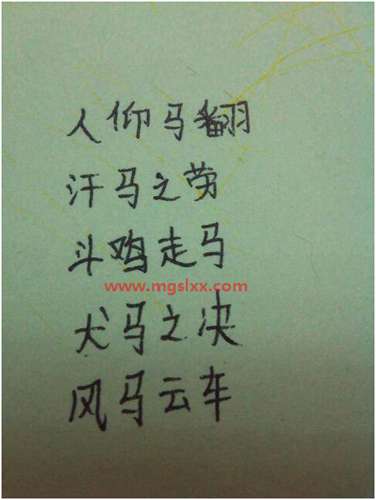 人仰马翻
汗马之劳
斗鸡走马
www.mgslxx.com
犬马之决
风马云车